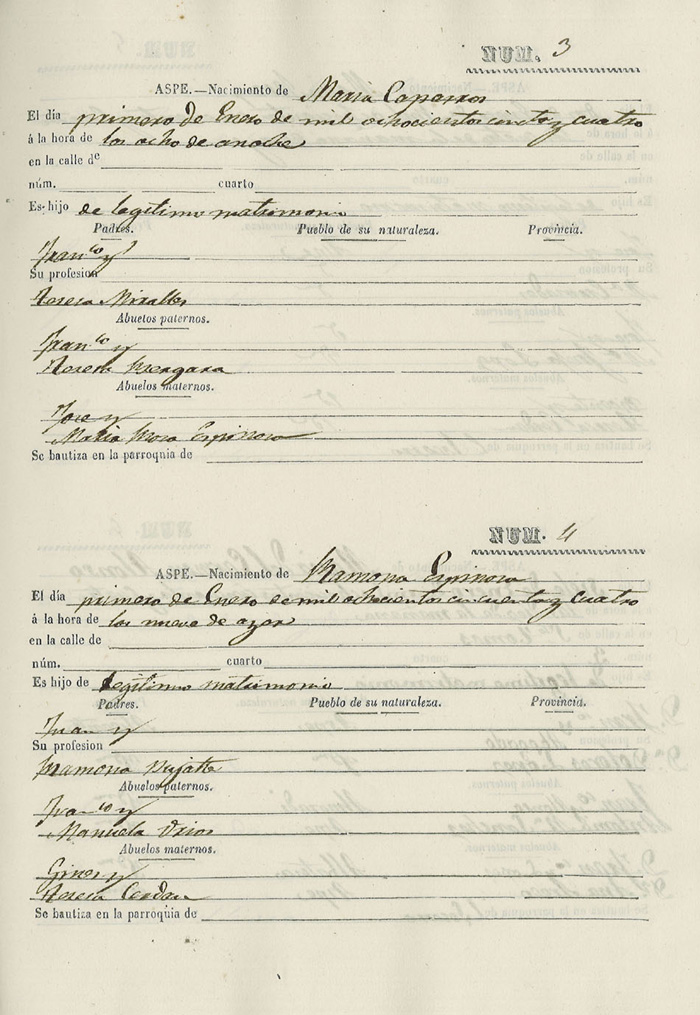 NUM. 3
ASPE.—Nacimiento de Maria Caparros
El día primero de Enero de mil ochocientos cincta y cuatro
á la hora de las ocho de anoche
en la calle de
núm. cuarto
Es hijo de legitimo matrimonio
Padres. Pueblo de su naturaleza. Provincia.
Franco y
Su profesion
Teresa Miralles
Abuelos paternos.
Franco y
Teresa Vergara
Abuelos maternos.
Jose y
Maria Rosa Espinosa
Se bautiza en la parroquia de
NUM. 4
ASPE.—Nacimiento de Ramona Espinosa
El día primero de Enero de mil ochocientos cincuenta y cuatro
á la hora de las nueve de
en la calle de
núm. cuarto
Es hijo de legitimo matrimonio
Padres. Pueblo de su naturaleza. Provincia.
Juan y
Su profesion
Ramona
Abuelos paternos.
Franco y
Manuela
Abuelos maternos.
Gines y
Teresa Cerdan
Se bautiza en la parroquia de